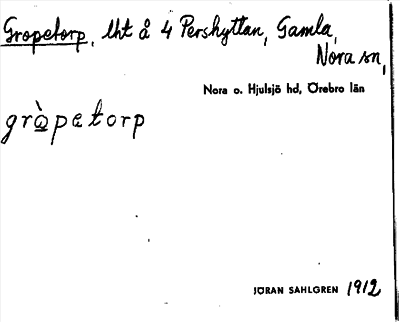 Gropetorp, lht å 4 Pershyttan, Gamla,
Nora sn,
Nora o. Hjulsjö hd, Örebro län
grὰpetorp
JÖRAN SAHLGREN 1912